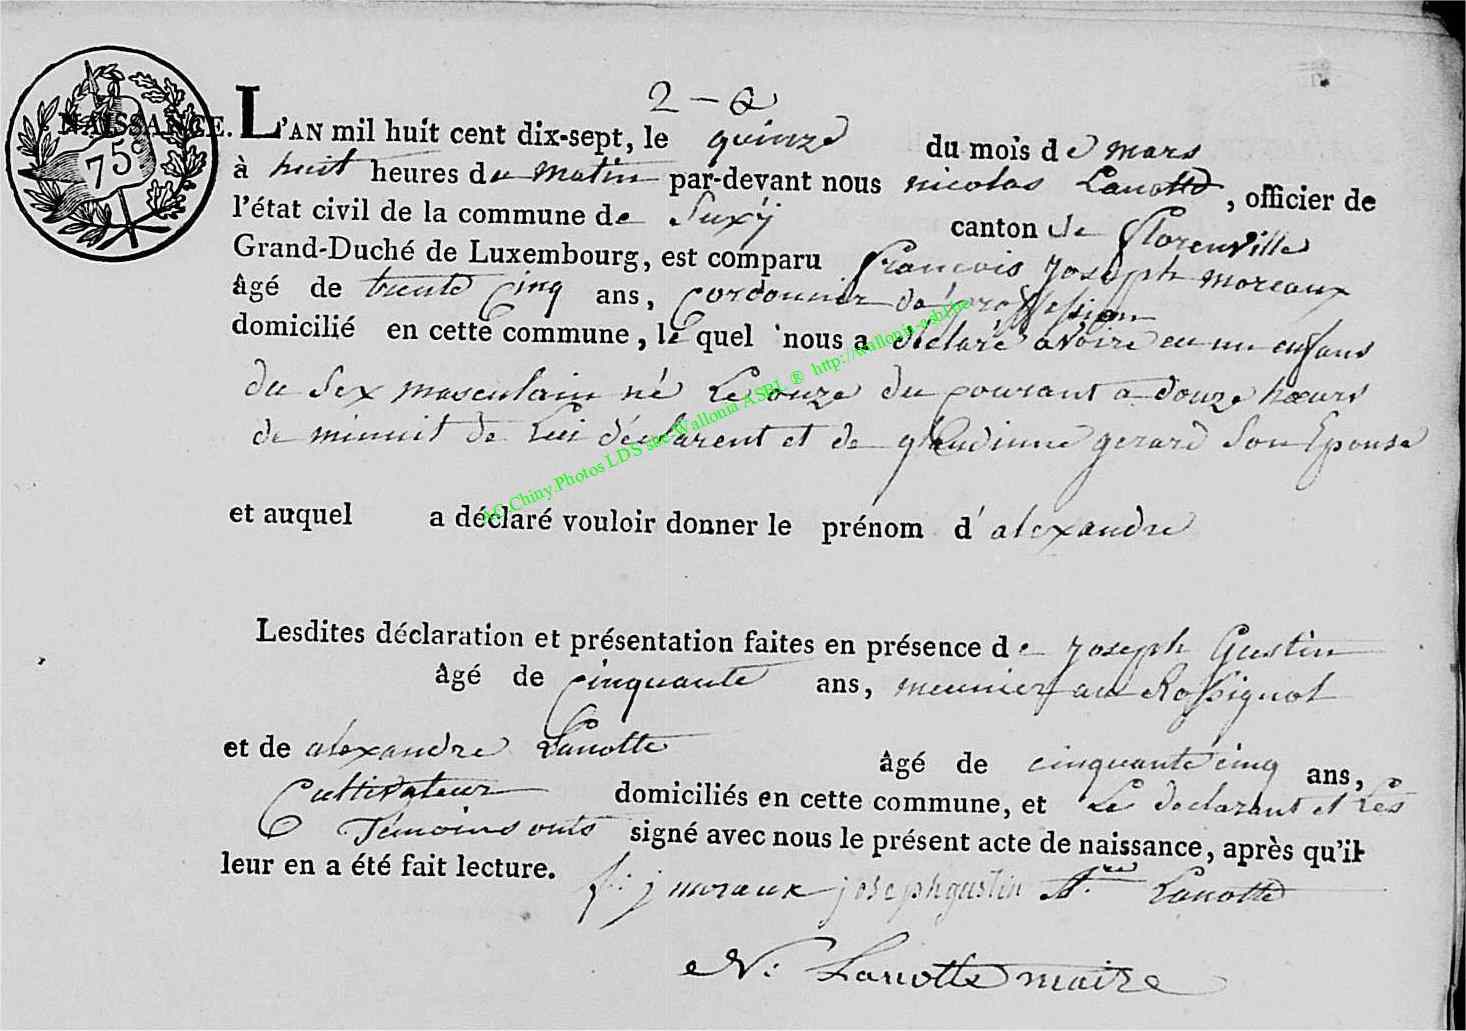 2 - e
NAISSANCE. L'AN mil huit cent dix-sept, le quinze du mois de mars
75c
à huit heures du matin par-devant nous nicolas Lanotte, officier de
l'état civil de la commune de Suxÿ canton de florenville
Grand-Duché de Luxembourg, est comparu francois joseph moreaux
âgé de trente Cinq ans, Cordonnier de proffession
domicilié en cette commune, le quel nous a déclaré avoire eu un enfans
du Sex masculain né Le onze du courant a douze hœurs
de minuit de Lui déclarent et de gerard Son Epouse
AC Chiny.Photos LDS site Wallonia ASBL ® http://wallonia-asbl.be
et auquel a déclaré vouloir donner le prénom d' alexandre
Lesdites déclaration et présentation faites en présence de joseph Gustin
âgé de Cinquante ans, meunier au Rossignol
et de alexandre Lanotte âgé de cinquante cinq ans,
Cultivateur domiciliés en cette commune, et Le declarant et Les
Témoins onts signé avec nous le présent acte de naissance, après qu'il
leur en a été fait lecture.
f: j moraux joseph gustin A.re Lanotte
N: Lanotte maire